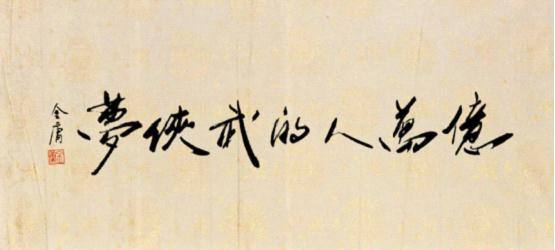 億萬人的武俠夢
金庸